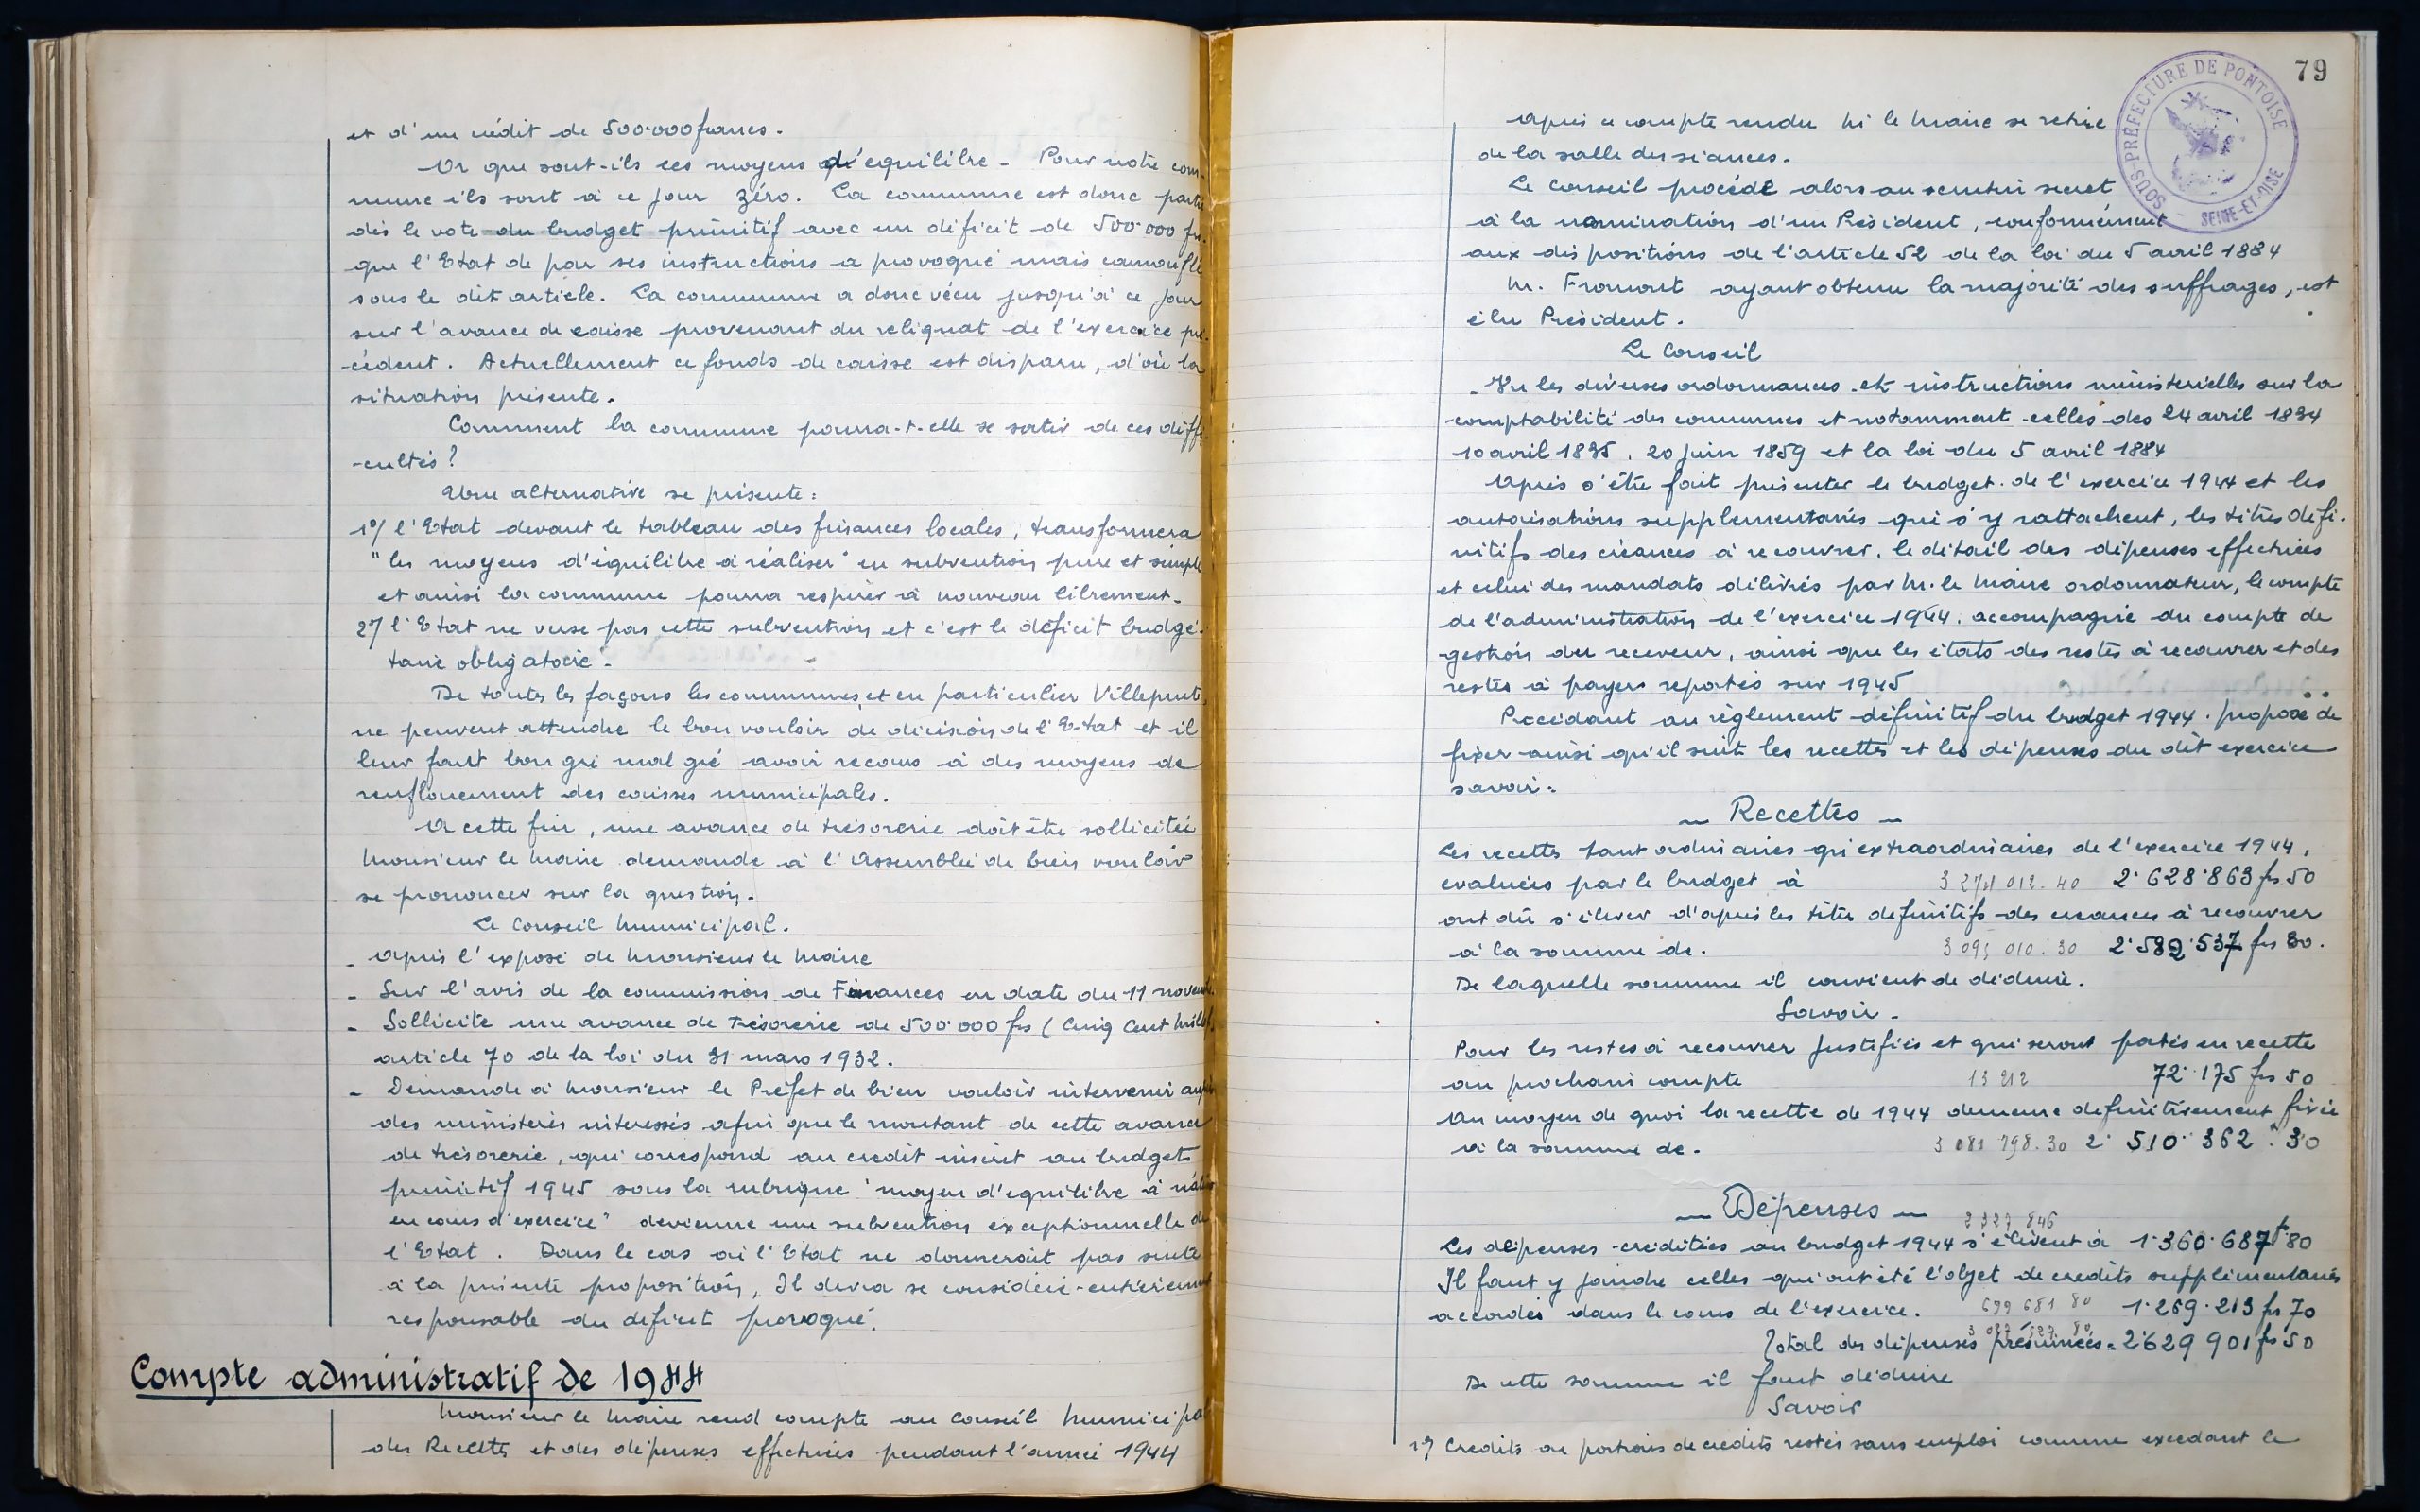 et d'un crédit de 500.000 francs.
Or que sont-ils ces moyens d'équilibre - Pour notre com-
mune ils sont à ce jour zéro. La commune est donc partie
dès le vote du budget primitif avec un déficit de 500.000 frs
que l'Etat de par ses instructions a provoqué mais camouflé
sous le dit article. La commune a donc vécu jusqu'à ce jour
sur l'avance de caisse provenant du reliquat de l'exercice pré-
cédent. Actuellement ce fonds de caisse est disparu, d'où la
situation présente.
Comment la commune pourra-t-elle se sortir de ces diffi-
-cultés ?
Une alternative se présente :
1°/ l'Etat devant le tableau des finances locales, transformera
"les moyens d'équilibre à réaliser" en subvention pure et simple
et ainsi la commune pourra respirer à nouveau librement.
2°/ l'Etat ne verse pas cette subvention et c'est le déficit budgé-
taire obligatoire.
De toutes les façons les communes, et en particulier Villepinte,
ne peuvent attendre le bon vouloir de décision de l'Etat et il
leur faut bon gré mal gré avoir recours à des moyens de
renflouement des caisses municipales.
A cette fin, une avance de trésorerie doit être sollicitée
Monsieur le Maire demande à l'Assemblée de bien vouloir
se prononcer sur la question.
Le Conseil Municipal.
- après l'exposé de Monsieur le Maire
- Sur l'avis de la commission de Finances en date du 11 novembre
- Sollicite une avance de Trésorerie de 500.000 frs ( Cinq Cent mille
article 70 de la loi du 31 mars 1932.
- Demande à Monsieur le Préfet de bien vouloir intervenir auprès
des ministères intéressés afin que le montant de cette avance
de trésorerie, qui correspond au crédit inscrit au budget
primitif 1945 sous la rubrique "moyen d'équilibre à réaliser
en cours d'exercice" devienne une subvention exceptionnelle de
l'Etat. Dans le cas où l'Etat ne donnerait pas suite
à la présente proposition, Il devra se considérer entièrement
responsable du déficit provoqué.
Compte administratif de 1944
Monsieur le Maire rend compte au Conseil Municipal
des Recettes et des dépenses effectuées pendant l'année 1944
79
SOUS-PRÉFECTURE DE PONTOISE
SEINE-ET-OISE
Après ce compte rendu M. le Maire se retire
de la salle des séances.
Le Conseil procède alors au scrutin secret
à la nomination d'un Président, conformément
aux dispositions de l'article 52 de la loi du 5 avril 1884
M. Fromont ayant obtenu la majorité des suffrages, est
élu Président.
Le Conseil
- Vu les diverses ordonnances et instructions ministérielles sur la
comptabilité des communes et notamment celles des 24 avril 1834
10 avril 1835, 20 juin 1859 et la loi du 5 avril 1884
Après s'être fait présenter le budget de l'exercice 1944 et les
autorisations supplémentaires qui s'y rattachent, les titres défi-
nitifs des créances à recouvrer, le détail des dépenses effectuées
et celui des mandats délivrés par M. le Maire ordonnateur, le compte
de l'administration de l'exercice 1944, accompagné du compte de
gestion du receveur, ainsi que les états des restes à recouvrer et des
restes à payer reportés sur 1945
Procédant au règlement définitif du budget 1944. propose de
fixer ainsi qu'il suit les recettes et les dépenses du dit exercice
savoir :
- Recettes -
Les recettes tant ordinaires qu'extraordinaires de l'exercice 1944,
évaluées par le budget à 3 274 012.40 2.628.863 frs 50
ont dû s'élever d'après les titres définitifs des créances à recouvrer
à la somme de. 3 095 010.30 2.582.537 frs 80.
De laquelle somme il convient de déduire.
Savoir.
Pour les restes à recouvrer justifiés et qui seront portés en recette
au prochain compte 13 212 72.175 frs 50
Au moyen de quoi la recette de 1944 demeure définitivement fixée
à la somme de. 3 081 798.30 2.510.362.30
- Dépenses -
2 327 846
Les dépenses créditées au budget 1944 s'élèvent à 1.360.687f80
Il faut y joindre celles qui ont été l'objet de crédits supplémentaires
accordés dans le cours de l'exercice. 699 681 80 1.269.213 frs 70
3 027 527 80
Total des dépenses présumées = 2.629 901 frs 50
De cette somme il faut déduire
Savoir
1°/ Crédits ou portions de crédits restés sans emploi comme excédant le